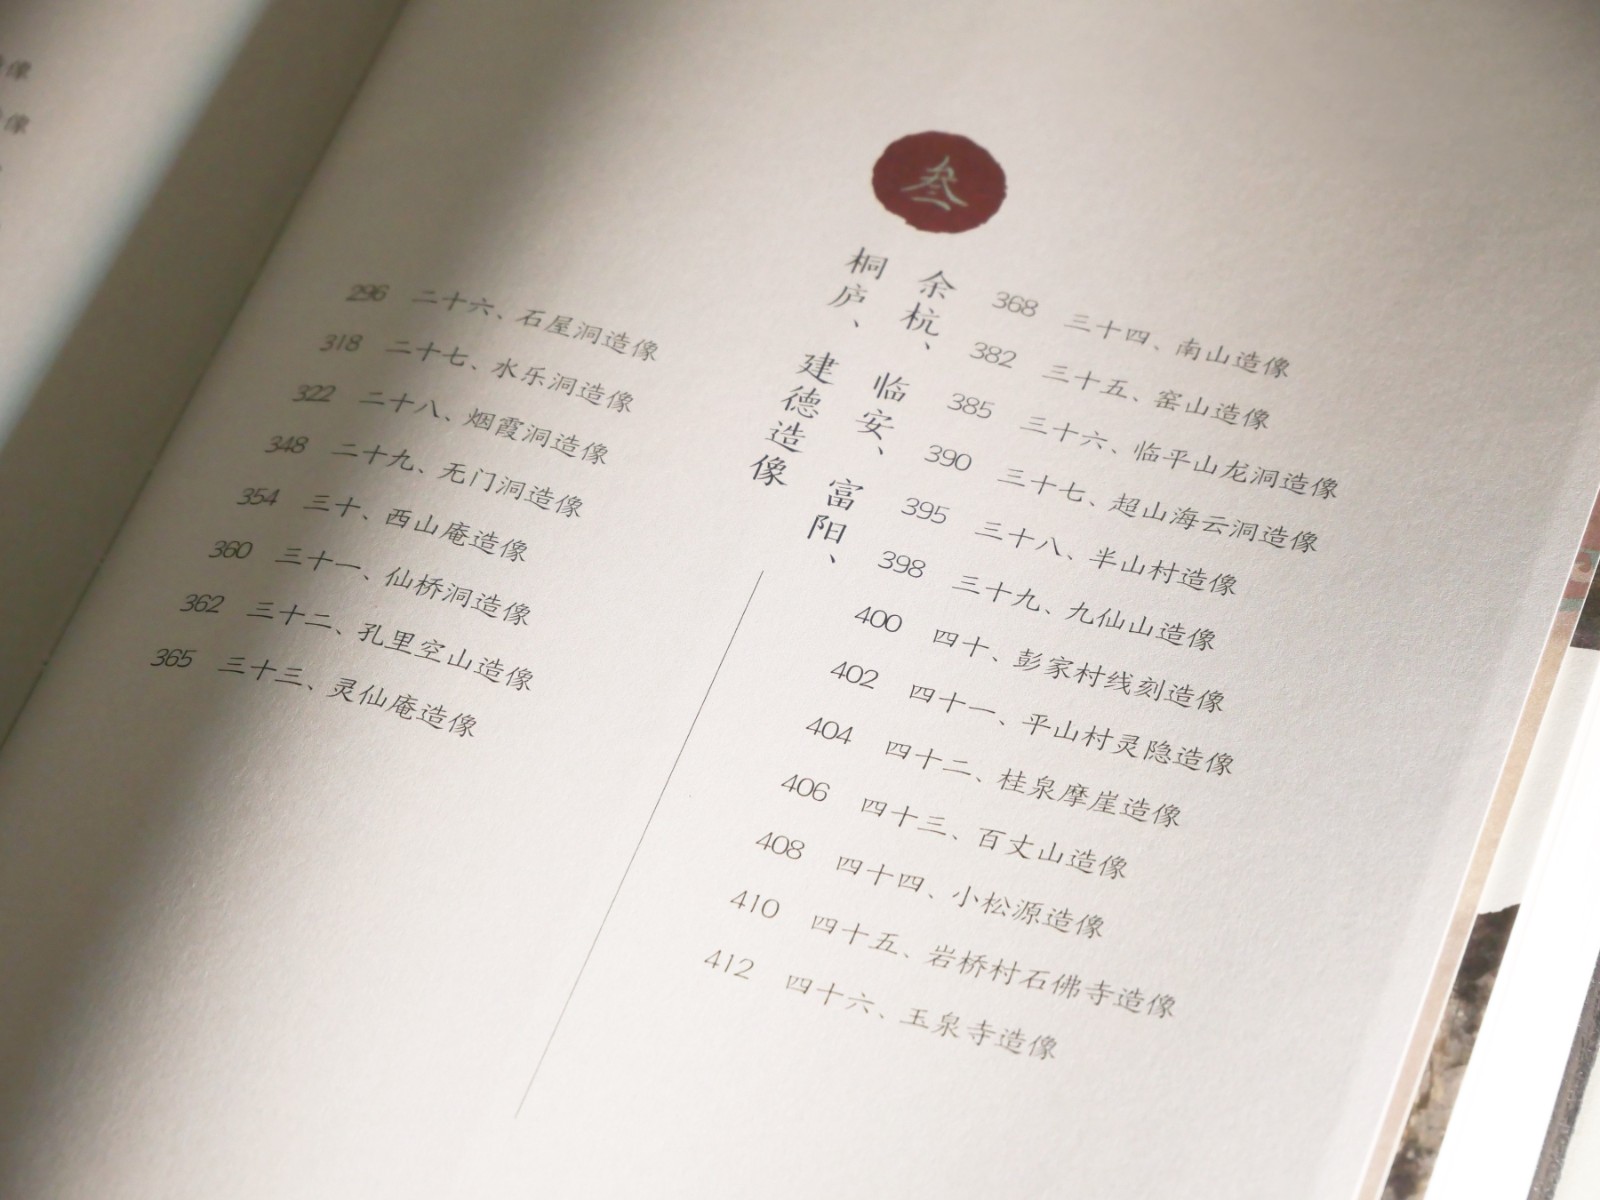 像
像
296 二十六、石屋洞造像
318 二十七、水乐洞造像
322 二十八、烟霞洞造像
348 二十九、无门洞造像
354 三十、西山庵造像
360 三十一、仙桥洞造像
362 三十二、孔里空山造像
365 三十三、灵仙庵造像
叁
余杭、临安、富阳、
桐庐、建德造像
368 三十四、南山造像
382 三十五、窑山造像
385 三十六、临平山龙洞造像
390 三十七、超山海云洞造像
395 三十八、半山村造像
398 三十九、九仙山造像
400 四十、彭家村线刻造像
402 四十一、平山村灵隐造像
404 四十二、桂泉摩崖造像
406 四十三、百丈山造像
408 四十四、小松源造像
410 四十五、岩桥村石佛寺造像
412 四十六、玉泉寺造像